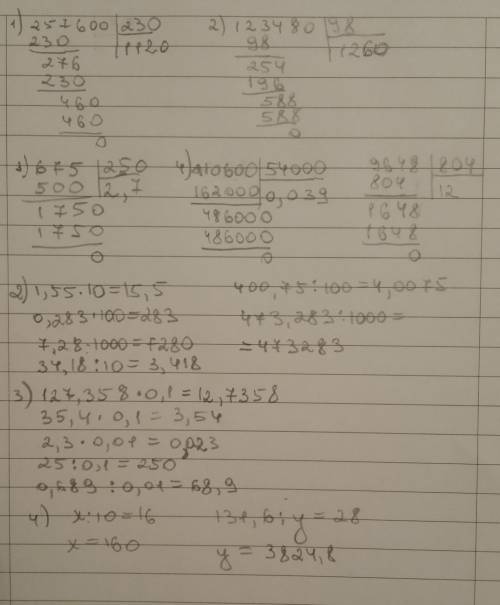 1) 257600 | 230
230 | 1120
276
230
460
460
0
2) 123480 | 98
98 | 1260
254
196
588
588
0
3) 675 | 250
500 | 2,7
1750
1750
0
4) 210600 | 54000
162000 | 0,039
486000
486000
0
9648 | 804
804 | 12
1648
1648
0
2) 1,55·10=15,5
0,283·100=283
7,28·1000=7280
34,18:10=3,418
400,75:100=4,0075
473,283:1000=
=473283
3) 127,358·0,1=12,7358
35,4·0,1=3,54
2,3·0,01=0,023
25:0,1=250
0,689:0,01=68,9
4) x:10=16
x=160
y=3824,8